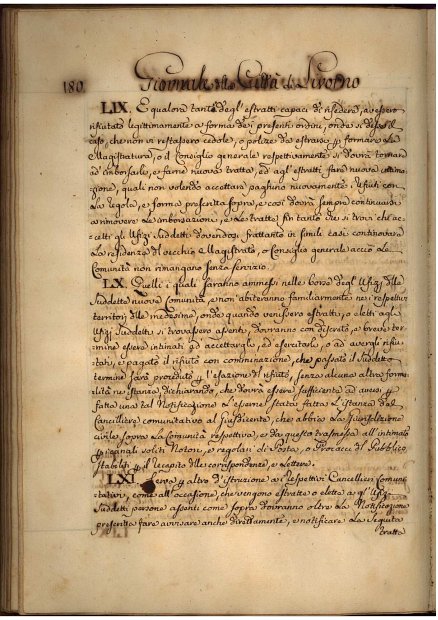 180. Giornale della Città di Livorno
LIX. E qualora tanti degl'estratti capaci di risedere, avessero
rifiutato legittimamente a forma de i presenti ordini, onde si desse il
caso, che non vi restassero cedole, o polizze da estrarsi p formare la
Magistratura, o il Consiglio generale respettivamente si dovrà tornare
ad imborsarle, e farne nuova tratta, ed agl'estratti fare nuova intima-
zione, quali non volendo accettare paghino nuovamente i rifiuti con
la regola, e forma prescritta sopra, e così dovrà sempre continuarsi
a rinnovare le imborsazioni, e le tratte fin tanto che si trovi chi ac-
cetti gli Ufizi suddetti dovendosi frattanto in simili casi continovare
la residenza il vecchio Magistrato, o Consiglio generale acciò le
Comunità non rimangano senza servizio.
LX. Quelli i quali saranno ammessi nelle borse degl'Ufizj delle
suddette nuove Comunità, e non abiteranno familiarmente nei respettivi
territorj delle medesime, onde quando venissero estratti, o eletti agli
Ufizj suddetti si trovassero assenti, dovranno con discreto, e breve ter-
mine essere intimati ad accettargli, ed esercitarli, o ad avergli rifiu-
tati, e pagato il rifiuto con comminazione, che passato il suddetto
termine sarà proceduto p l'esazione del rifiuto, senza alcuna altra forma-
lità ne stanza, dichiarando, che dovrà essere sufficiente ad aversi p
fatta una tal Notificazione l'esserne stata fatta l'istanza dal
Cancelliere comunitativo al Giusdicente, che abbia la Giurisdizione
civile sopra la Comunità respettiva, e da questo trasmessa all'intimato
p i canali soliti Notori, e regolari di Posta, o Procacci del Pubblico
stabiliti p il recapito delle corrispondenze, e lettere.
LXI. Serva p altro d'istruzione a i respettivi Cancellieri Comuni-
tativi, come all'occasione, che vengono estratte o elette a gl'Ufizj
suddetti persone assenti come sopra dovranno oltre la Notificazione
prescritta fare avvisare anche direttamente, e notificare la seguita
tratta